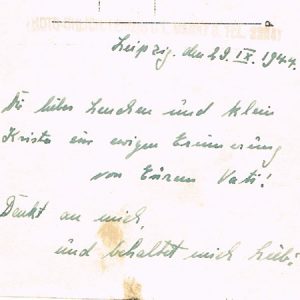 Leipzig, den 29. IX. 1944.
Du liebes Lenchen und klein
Krista ein ewigen Erinnerung
von Eurem Vati!
Denkt an mich,
und behaltet mich lieb!